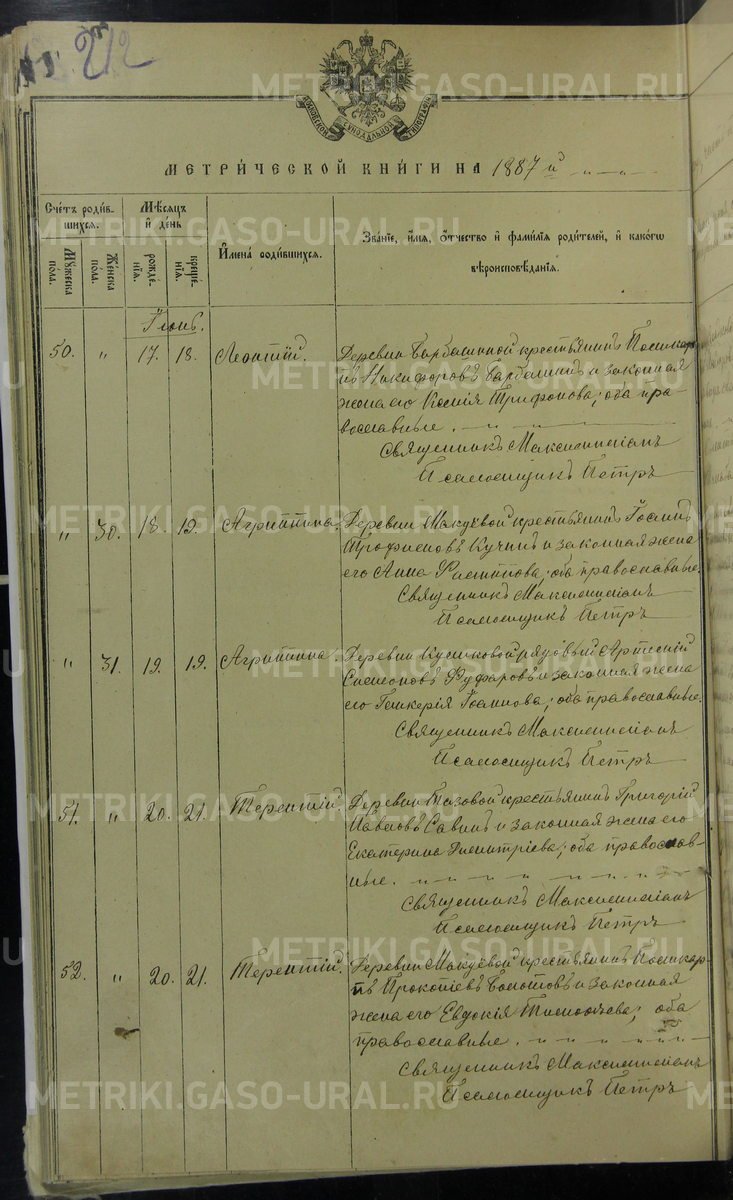 212
METRIKI.GASO-URAL.RU
МОСКОВСКОЙ СѴНОДАЛЬНОЙ ТИПОГРАФІИ
МЕТРИ́ЧЕСКОЙ КНИ́ГИ НА 1887 й
Сче́тъ роди́в-
шихся.
Му́жеска
по́ла.
Же́нска
по́ла.
Мѣ́сяцъ
и҆ де́нь
рожде́-
нїѧ.
креще́-
нїѧ.
И҆мена̀ роди́вшихсѧ.
Зва́нїе, и҆́мѧ, ѻ҆́тчество и҆ фами́лїѧ роди́телей, и҆ како́гѡ
вѣроисповѣ́данїѧ.
Іюнь.
50. " 17. 18. Леонтій. Деревни Барбашиной крестьянинъ Поликар-
пъ Никифоровъ Барбашинъ и законная
жена его Ксенія Трифонова; оба пра-
вославные.
Священникъ Максимиліанъ
Псаломщикъ Петръ
" 30. 18. 19. Агриппина. Деревни Макуевой крестьянинъ Іоаннъ
Трофимовъ Кучинъ и законная жена
его Анна Филиппова; оба православные.
Священникъ Максимиліанъ
Псаломщикъ Петръ
" 31. 19. 19. Агриппина. Деревни рядовый Артемій
Симеоновъ и законная жена
его Гликерія Іоаннова; оба православные.
Священникъ Максимиліанъ
Псаломщикъ Петръ
51. " 20. 21. Терентій. Деревни Тазовой крестьянинъ Григорій
Павловъ Савинъ и законная жена его
Екатерина Димитріева; оба православ-
ные.
Священникъ Максимиліанъ
Псаломщикъ Петръ
52. " 20. 21. Терентій. Деревни Макуевой крестьянинъ Поликар-
пъ Прокопіевъ Болотовъ и законная
жена его Евдокія Тимофеева; оба
православные.
Священникъ Максимиліанъ
Псаломщикъ Петръ